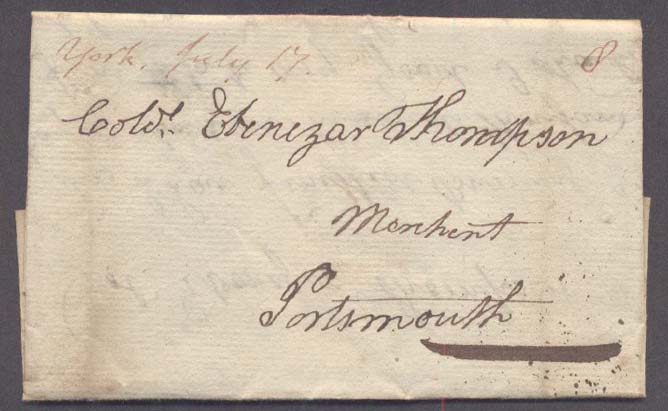 York, July 17. 8
Cold. Ebenezar Thompson
Merchent
Portsmouth